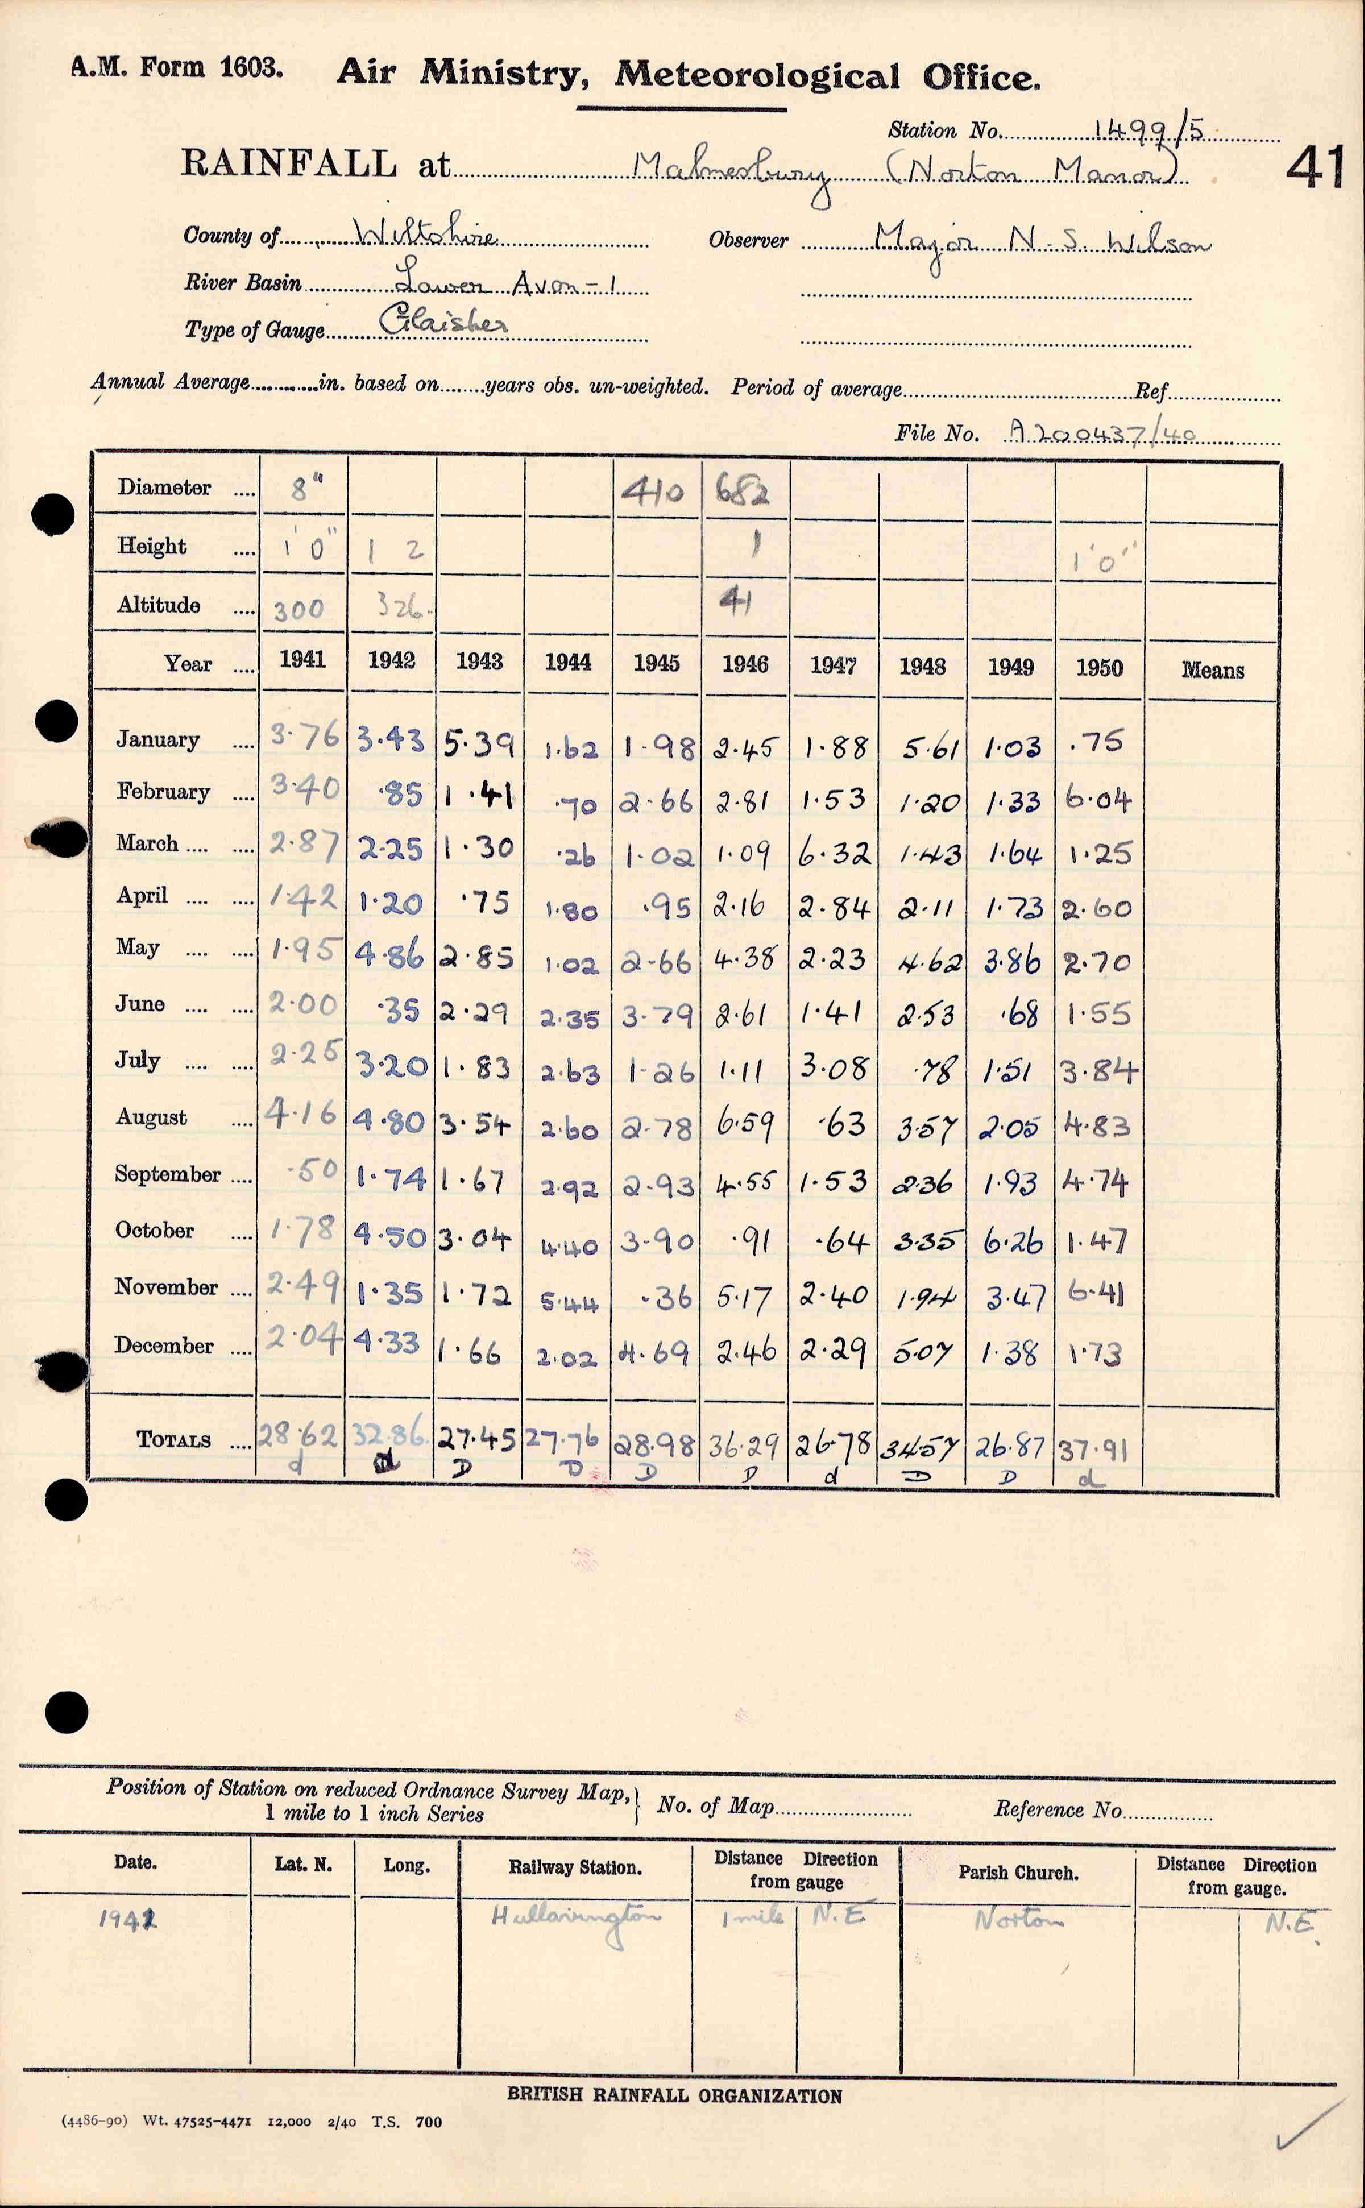 A.M. Form 1603. Air Ministry, Meteorological Office.
Station No. 1499/5
RAINFALL at Malmesbury (Norton Manor) 41
County of Wiltshire Observer Major N. S. Wilson
River Basin Lower Avon-1
Type of Gauge Glaisher
Annual Average............in. based on.......years obs. un-weighted. Period of average.......... Ref..........
File No. A200437/40
Diameter .... 8" 410 682
Height .... 1' 0" 1 2 1 1'0"
Altitude .... 300 326. 41
Year .... 1941 1942 1943 1944 1945 1946 1947 1948 1949 1950 Means
January .... 3.76 3.43 5.39 1.62 1.98 2.45 1.88 5.61 1.03 .75
February .... 3.40 .85 1.41 .70 2.66 2.81 1.53 1.20 1.33 6.04
March .... .... 2.87 2.25 1.30 .26 1.02 1.09 6.32 1.43 1.64 1.25
April .... .... 1.42 1.20 .75 1.80 .95 2.16 2.84 2.11 1.73 2.60
May .... .... 1.95 4.86 2.85 1.02 2.66 4.38 2.23 4.62 3.86 2.70
June .... .... 2.00 .35 2.29 2.35 3.79 2.61 1.41 2.53 .68 1.55
July .... .... 2.25 3.20 1.83 2.63 1.26 1.11 3.08 .78 1.51 3.84
August .... 4.16 4.80 3.54 2.60 2.78 6.59 .63 3.57 2.05 4.83
September .... .50 1.74 1.67 2.92 2.93 4.55 1.53 2.36 1.93 4.74
October .... 1.78 4.50 3.04 4.40 3.90 .91 .64 3.35 6.26 1.47
November .... 2.49 1.35 1.72 5.44 .36 5.17 2.40 1.94 3.47 6.41
December .... 2.04 4.33 1.66 2.02 4.69 2.46 2.29 5.07 1.38 1.73
TOTALS .... 28.62 32.86 27.45 27.76 28.98 36.29 26.78 34.57 26.87 37.91
d d D D D D d D D d
Position of Station on reduced Ordnance Survey Map, } No. of Map.......... Reference No..........
1 mile to 1 inch Series
Date. Lat. N. Long. Railway Station. Distance Direction from gauge Parish Church. Distance Direction from gauge.
1941 Hullavington 1 mile N.E Norton N.E.
BRITISH RAINFALL ORGANIZATION
(4486-90) Wt. 47525-4471 12,000 2/40 T.S. 700